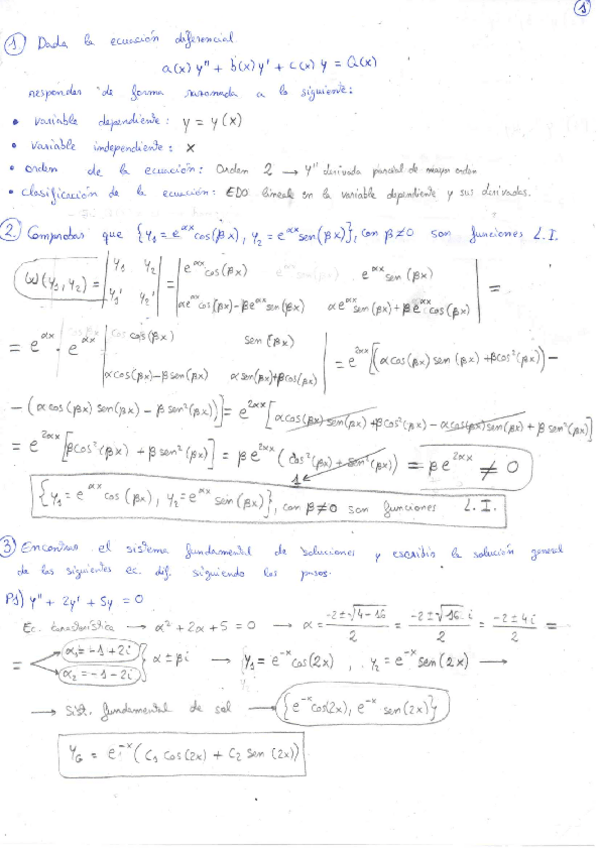 1
1 Dada la ecuación diferencial
a(x) y'' + b(x) y' + c(x) y = G(x)
responder de forma razonada a lo siguiente:
• variable dependiente: y = y(x)
• variable independiente: x
• orden de la ecuación: Orden 2 → y'' derivada parcial de mayor orden
• clasificación de la ecuación: EDO lineal en la variable dependiente y sus derivadas.
2. Comprobar que {y₁ = e^{αx} cos(βx), y₂ = e^{αx} sen(βx)}, con β≠0 son funciones L.I.
W(y₁, y₂) = | y₁ y₂ ; y₁' y₂' | = | e^{αx} cos(βx) e^{αx} sen(βx) ; αe^{αx} cos(βx) - βe^{αx} sen(βx) αe^{αx} sen(βx) + βe^{αx} cos(βx) | =
= e^{αx} · e^{αx} | cos(βx) sen(βx) ; αcos(βx) - βsen(βx) αsen(βx) + βcos(βx) | = e^{2αx} [(αcos(βx) sen(βx) + βcos²(βx)) -
- (αcos(βx) sen(βx) - βsen²(βx))] = e^{2αx} [αcos(βx) sen(βx) + βcos²(βx) - αcos(βx) sen(βx) + βsen²(βx)]
= e^{2αx} [βcos²(βx) + βsen²(βx)] = βe^{2αx} (cos²(βx) + sen²(βx)) = βe^{2αx} ≠ 0
1
{y₁ = e^{αx} cos(βx), y₂ = e^{αx} sen(βx)}, con β≠0 son funciones L.I.
3 Encontrar el sistema fundamental de soluciones y escribir la solución general
de las siguientes ec. dif. siguiendo los pasos.
P1) y'' + 2y' + 5y = 0
Ec. característica → α² + 2α + 5 = 0 → α = (-2 ± √(4-16))/2 = (-2 ± √16 · i)/2 = (-2 ± 4i)/2 =
= α₁ = -1 + 2i α₂ = -1 - 2i } α ± βi → y₁ = e^{-x} cos(2x), y₂ = e^{-x} sen(2x) →
→ Sist. fundamental de sol → {e^{-x} cos(2x), e^{-x} sen(2x)}
y_G = e^{-x} (C₁ cos(2x) + C₂ sen(2x))